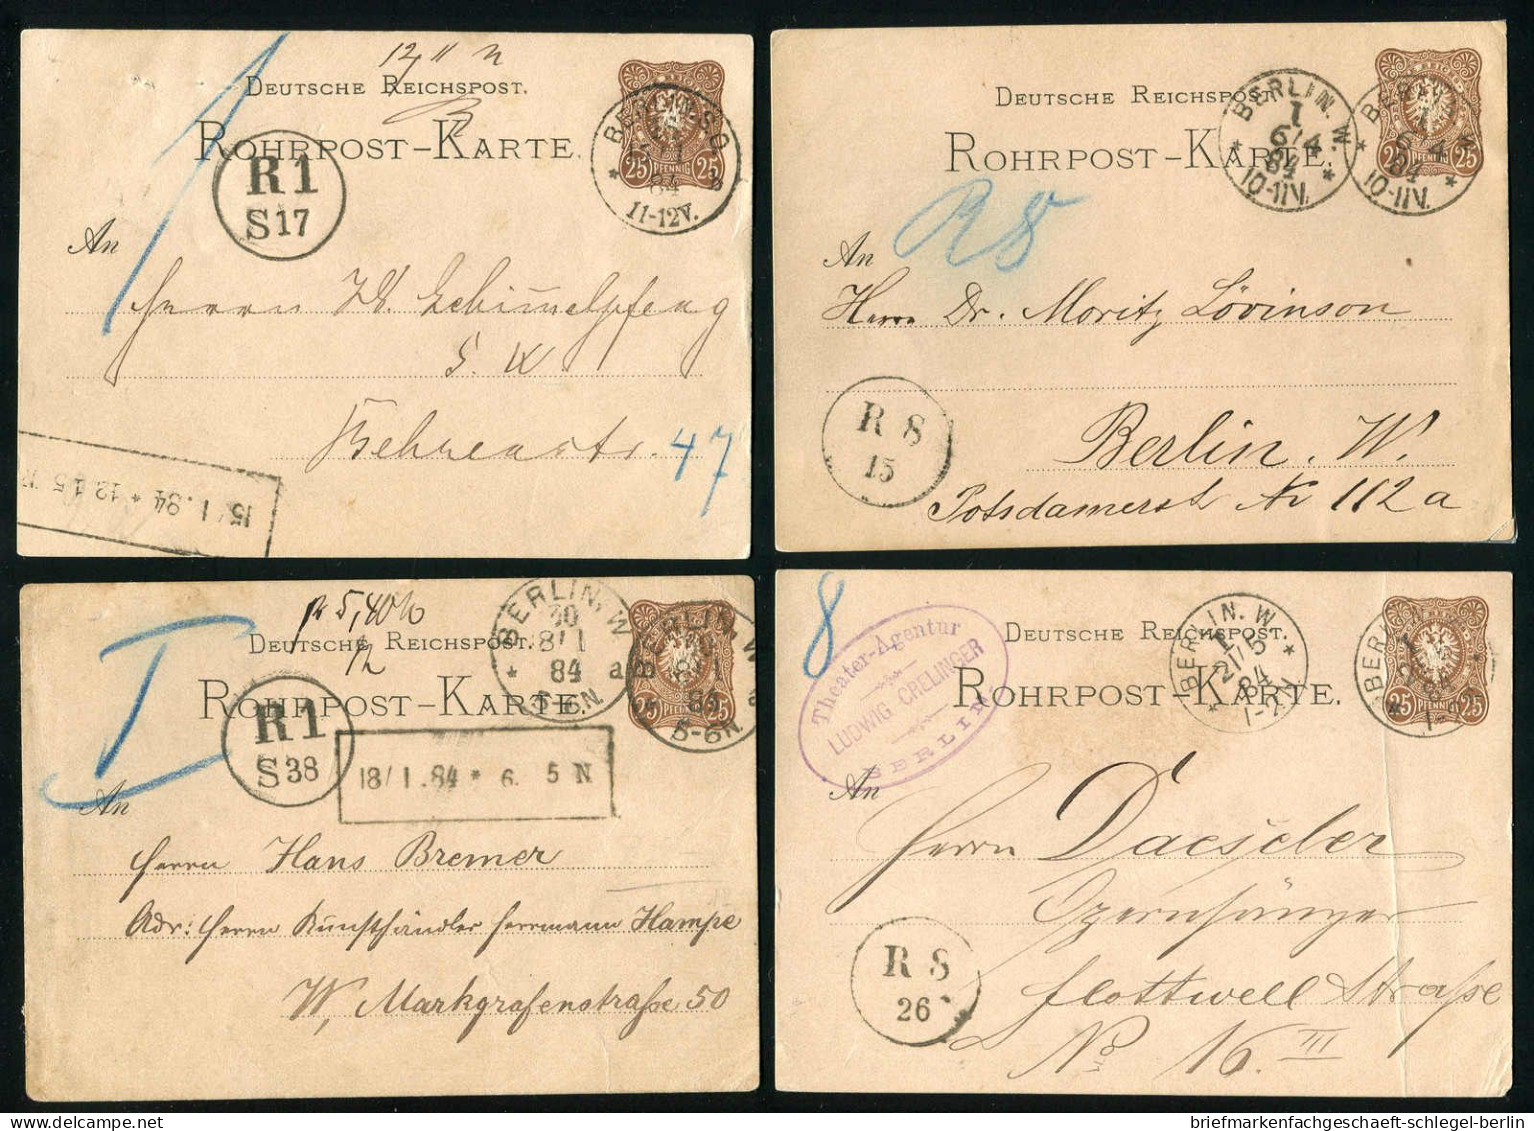 12/11 N
DEUTSCHE REICHSPOST.
ROHRPOST-KARTE.
25 PFENNIG 25
BERLIN. S.O.
84
11-12V.
R1
S17
An
Herrn W. Schimmelpfeng
S. W
Behrenstr. 47
15/1.84 * 12.15 N
DEUTSCHE REICHSPOST.
ROHRPOST-KARTE.
25 PFENNIG 25
BERLIN. W.
I
6/4
84
10-11V.
BERLIN. W
6/4
84
10-11V.
R8
An
Herrn Dr. Moritz Lövinson
R 8
15
Berlin. W.
Potsdamerstr. Nr 112 a
DEUTSCHE REICHSPOST.
ROHRPOST-KARTE.
25 PFENNIG 25
BERLIN, W
30
8/1
84 a
5-6N.
BERLIN, W
8/1
84
5-6N.
I
R1
S38
18/1.84 * 6. 5 N
An
Herrn Hans Bremer
Adr: Herrn Kunsthändler Herrmann Hampe
W, Markgrafenstraße 50
8
Theater-Agentur
LUDWIG CRELINGER
BERLIN.
DEUTSCHE REICHSPOST.
ROHRPOST-KARTE.
25 PFENNIG 25
BERLIN. W
I
21/5
84
1-2N
BERLIN
I
An
Herrn Daeseler
Opernsänger
R 8
26
Flottwell Straße
No 16 III
briefmarkenfachgeschaeft-schlegel-berlin